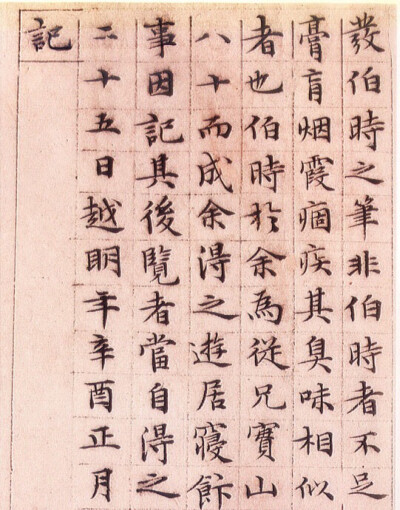 發伯時之筆非伯時者不足
膏肓烟霞痼疾其臭味相似
者也伯時於余為從兄寶山
八十而成余得之遊居寢飭
事因記其後覽者當自得之
二十五日越明年辛酉正月
記